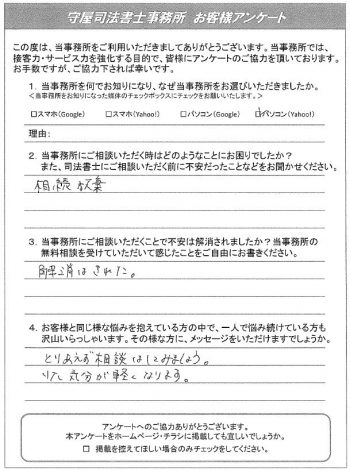 守屋司法書士事務所 お客様アンケート
この度は、当事務所をご利用いただきましてありがとうございます。当事務所では、
接客力・サービス力を強化する目的で、皆様にアンケートのご協力を頂いております。
お手数ですが、ご協力下されば幸いです。
1. 当事務所を何でお知りになり、なぜ当事務所をお選びいただきましたか。
<当事務所をお知りになった媒体のチェックボックスにチェックをお願いいたします。>
□スマホ(Google) □スマホ(Yahoo!) □パソコン(Google) ☑パソコン(Yahoo!)
理由:
2. 当事務所にご相談いただく時はどのようなことにお困りでしたか?
また、司法書士にご相談いただく前に不安だったことなどをお聞かせください。
相続放棄
3. 当事務所にご相談いただくことで不安は解消されましたか?当事務所の
無料相談を受けていただいて感じたことをご自由にお書きください。
解消はされた。
4. お客様と同じ様な悩みを抱えている方の中で、一人で悩み続けている方も
沢山いらっしゃいます。その様な方に、メッセージをいただけますでしょうか。
とりあえず相談はしてみましょう。
気分が軽くなります。
アンケートへのご協力ありがとうございます。
本アンケートをホームページ・チラシに掲載しても宜しいでしょうか。
□ 掲載を控えてほしい場合のみチェックをしてください。